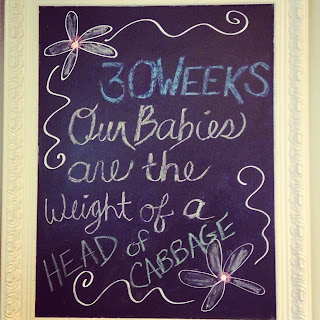 30 WEEKS
Our Babies
are the
Weight of a
HEAD of
CABBAGE